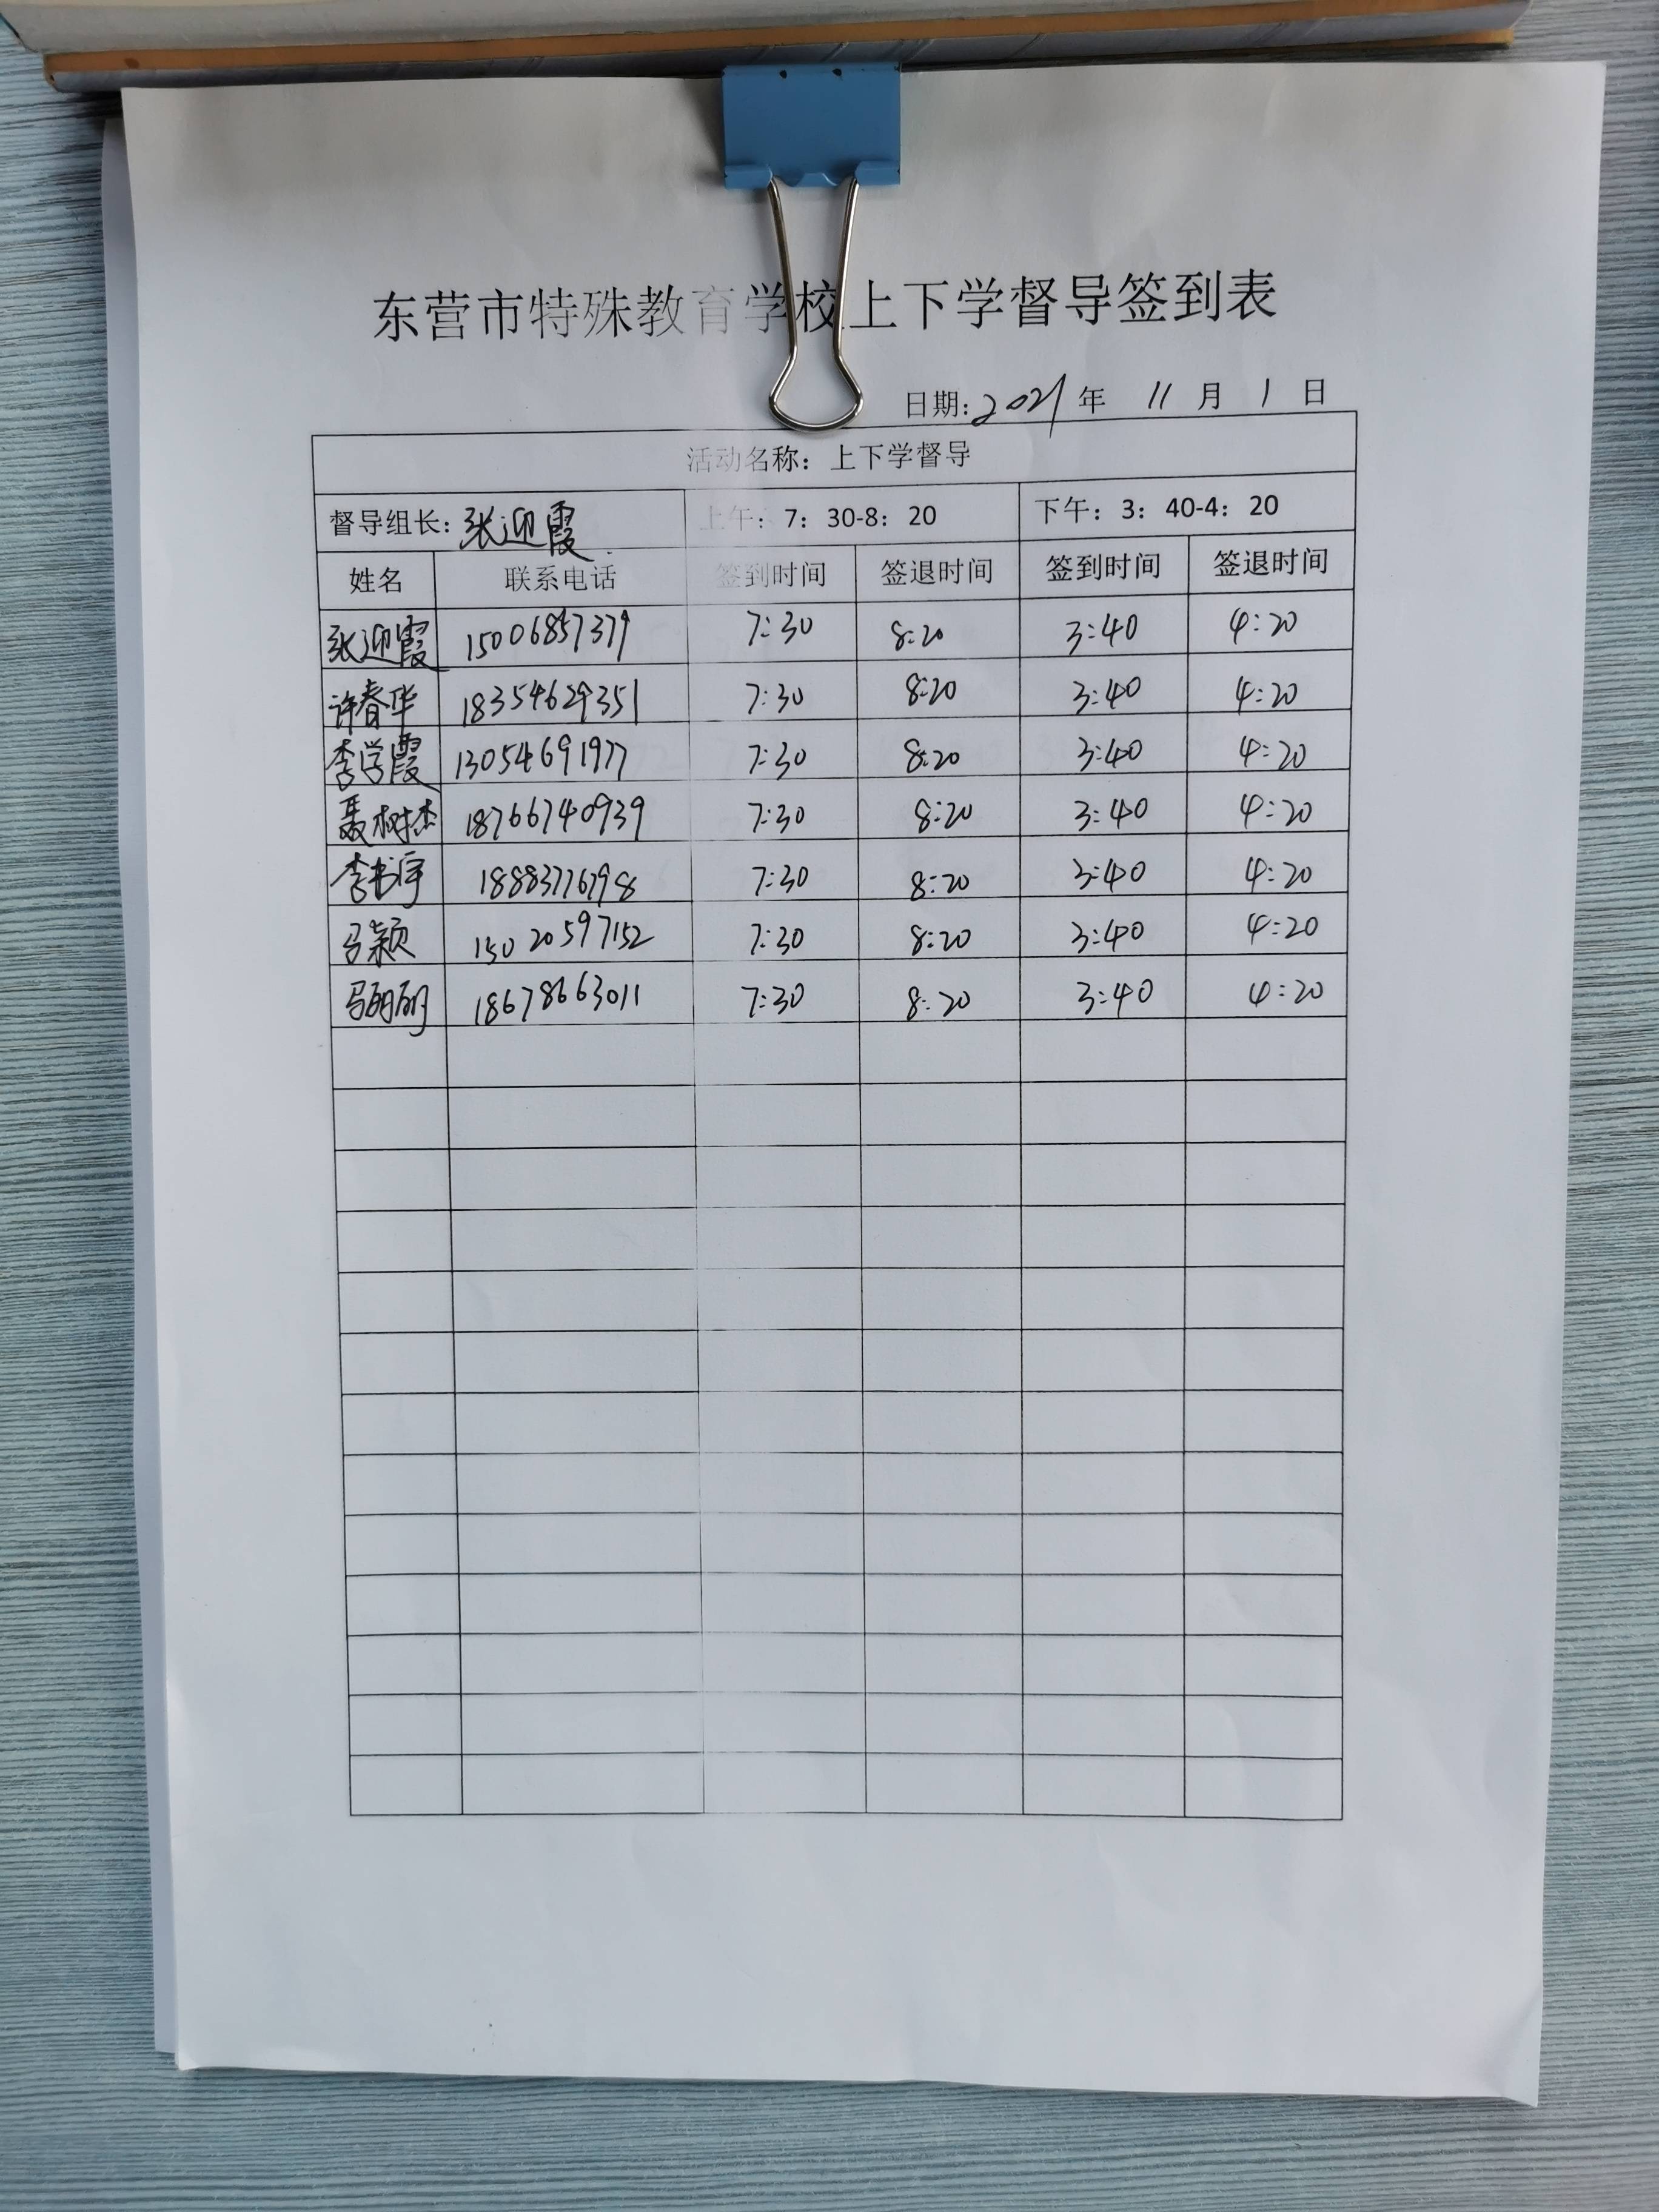 东营市特殊教育学校上下学督导签到表
日期:2021年 11 月 1 日
活动名称：上下学督导
督导组长：张迎霞 上午：7：30-8：20 下午：3：40-4：20
姓名 联系电话 签到时间 签退时间 签到时间 签退时间
张迎霞 15006857379 7:30 8:20 3:40 4:20
许春华 18354629351 7:30 8:20 3:40 4:20
李学霞 13054691977 7:30 8:20 3:40 4:20
聂树杰 18766740939 7:30 8:20 3:40 4:20
李书宇 18883776798 7:30 8:20 3:40 4:20
马颖 15020597152 7:30 8:20 3:40 4:20
马丽丽 18678663011 7:30 8:20 3:40 4:20